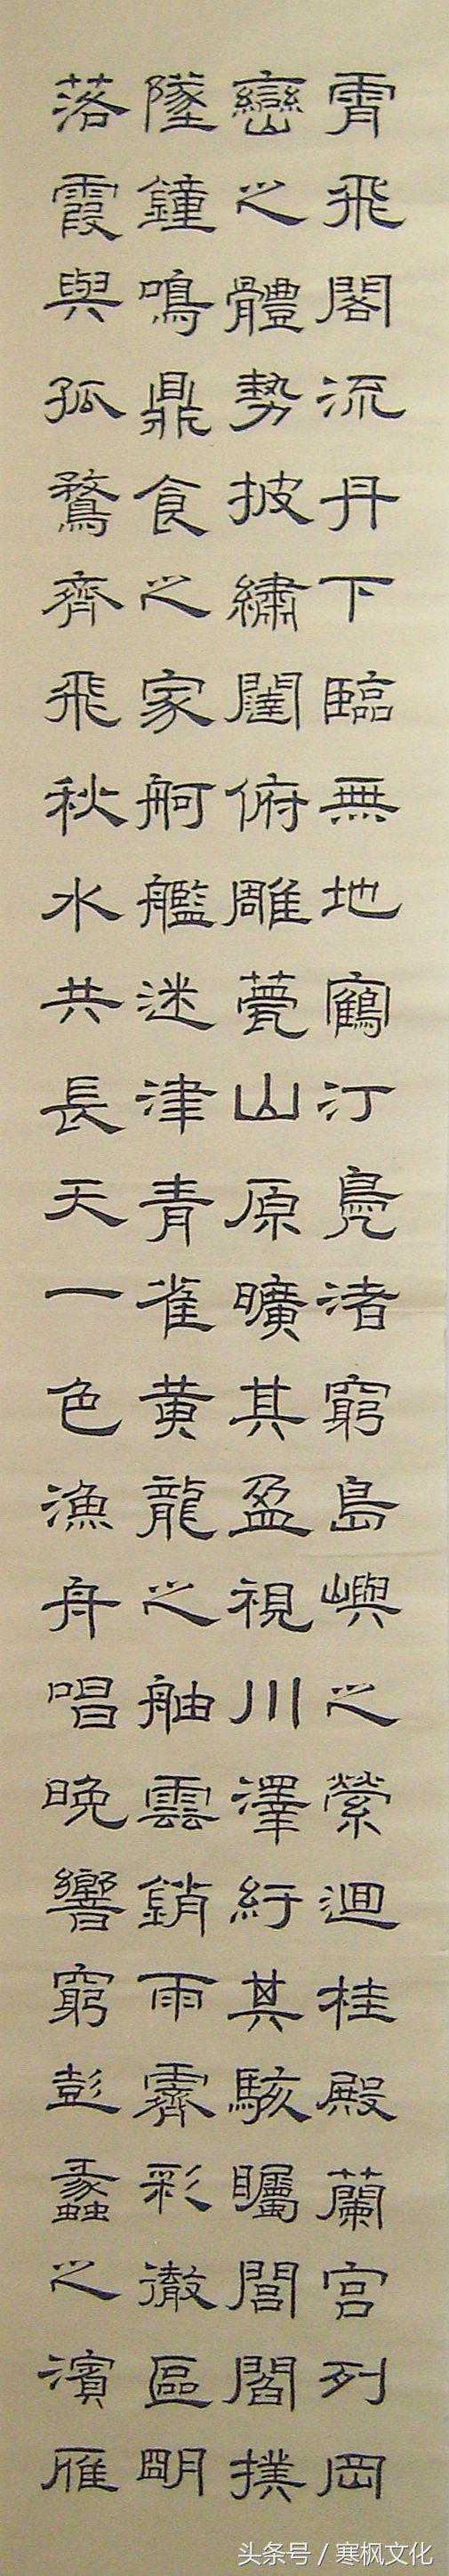 霄飛閣流丹下臨無地鶴汀鳧渚窮島嶼之縈迴桂殿蘭宮列岡
巒之體勢披繡闥俯雕甍山原曠其盈視川澤紆其駭矚閭閻撲
墜鐘鳴鼎食之家舸艦迷津青雀黃龍之舳雲銷雨霽彩徹區明
落霞與孤鶩齊飛秋水共長天一色漁舟唱晚響窮彭蠡之濱雁
头条号 / 寒枫文化